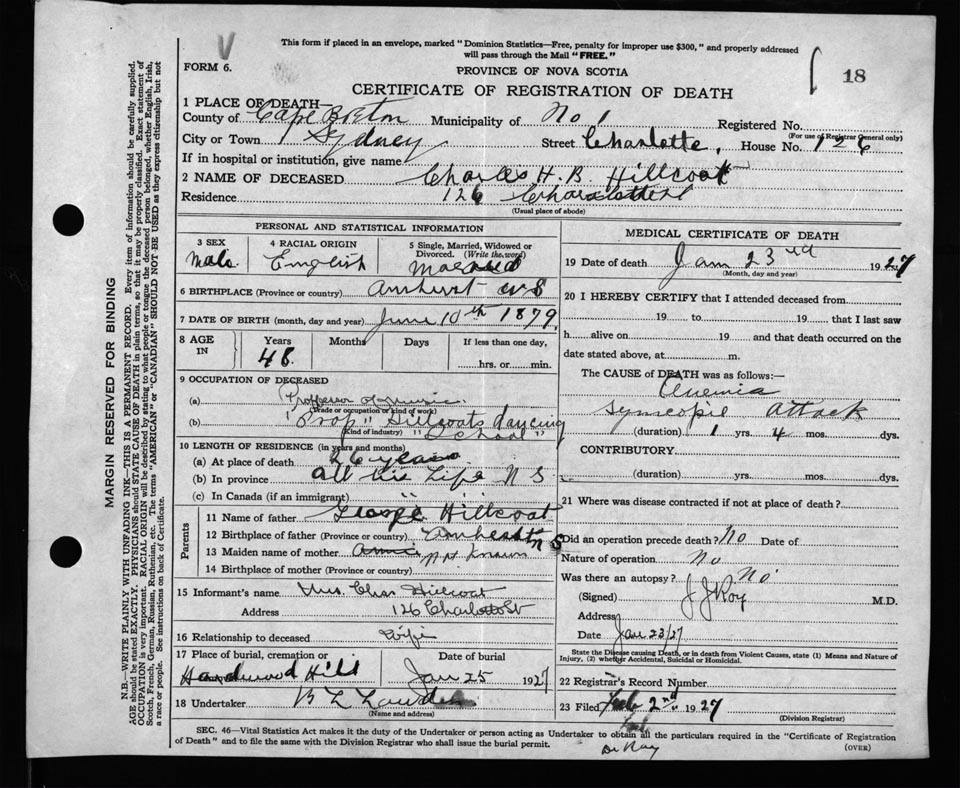 This form if placed in an envelope, marked "Dominion Statistics—Free, penalty for improper use $300," and properly addressed
will pass through the Mail "FREE."
V
FORM 6.
PROVINCE OF NOVA SCOTIA
18
CERTIFICATE OF REGISTRATION OF DEATH
1 PLACE OF DEATH—
County of Cape Breton Municipality of No 1 Registered No.
(For use of Registrar General only)
City or Town Sydney Street Charlotte, House No. 126
If in hospital or institution, give name
2 NAME OF DECEASED Charles H. B. Hillcoat
Residence 126 Charlotte
(Usual place of abode)
PERSONAL AND STATISTICAL INFORMATION
3 SEX Male
4 RACIAL ORIGIN English
5 Single, Married, Widowed or Divorced. (Write the word)
6 BIRTHPLACE (Province or country) Amhurst NS
7 DATE OF BIRTH (month, day and year) June 10th 1879
8 AGE IN Years 48 Months Days If less than one day,
hrs. or min.
9 OCCUPATION OF DECEASED
(a) Proffessor of Music
(Trade or occupation or kind of work)
(b) "Prop" Hillcoats dancing
(Kind of industry) "School"
10 LENGTH OF RESIDENCE (in years and months)
(a) At place of death 26 years
(b) In province all his Life N S
(c) In Canada (if an immigrant) " "
Parents
11 Name of father George Hillcoat
12 Birthplace of father (Province or country) Amherst N S
13 Maiden name of mother Not Known
14 Birthplace of mother (Province or country)
15 Informant's name Mrs. Chas Hillcoat
Address 126 Charlotte St
16 Relationship to deceased Wife
17 Place of burial, cremation or Date of burial
Hardwood Hill Jan 25 1927
18 Undertaker B L
(Name and address)
MEDICAL CERTIFICATE OF DEATH
19 Date of death Jan 23rd 1927
(Month, day and year)
20 I HEREBY CERTIFY that I attended deceased from
19 to 19 that I last saw
h alive on 19 and that death occurred on the
date stated above, at m.
The CAUSE of DEATH was as follows:—
Anemia
Syncopie Attack
(duration) 1 yrs. 4 mos. dys.
CONTRIBUTORY
(duration) yrs. mos. dys.
21 Where was disease contracted if not at place of death?
Did an operation precede death? No Date of
Nature of operation No
Was there an autopsy? No
(Signed) J J Roy M.D.
Address
Date Jan 23/27
State the Disease causing Death, or in death from Violent Causes, state (1) Means and Nature of
Injury, (2) whether Accidental, Suicidal or Homicidal.
22 Registrar's Record Number
23 Filed Feb 2nd 1927
(Division Registrar)
SEC. 46—Vital Statistics Act makes it the duty of the Undertaker or person acting as Undertaker to obtain all the particulars required in the "Certificate of Registration
of Death" and to file the same with the Division Registrar who shall issue the burial permit. (OVER)
MARGIN RESERVED FOR BINDING
N.B.—WRITE PLAINLY WITH UNFADING INK—THIS IS A PERMANENT RECORD. Every item of information should be carefully supplied.
AGE should be stated EXACTLY. PHYSICIANS should STATE CAUSE OF DEATH in plain terms, so that it may be properly classified. Exact statement of
OCCUPATION is very important. RACIAL ORIGIN will be described by stating to what people or tongue the deceased person belonged, whether English, Irish,
Scotch, French, German, Russian, Ruthenian, etc. The terms "AMERICAN" or "CANADIAN" SHOULD NOT BE USED as they express citizenship but not
a race or people. See instructions on back of Certificate.